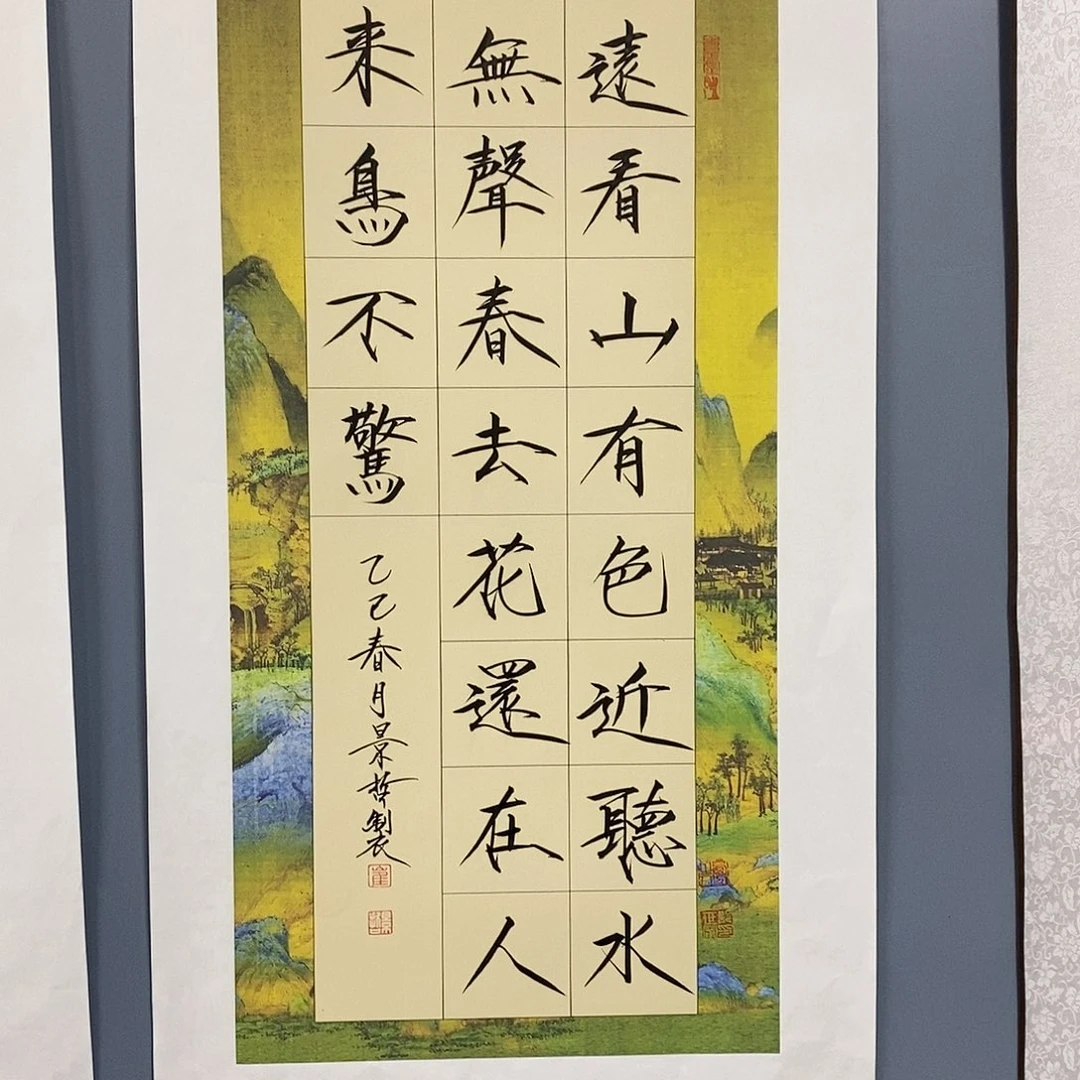 遠看山有色近聽水
無聲春去花還在人
来鳥不驚
乙巳春月景哲製